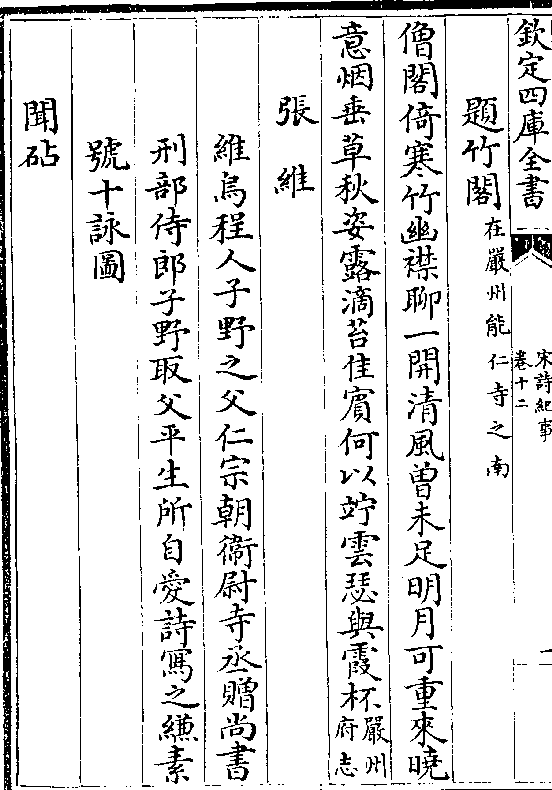 欽定四庫全書
宋詩紀事
卷十二
題竹閣在嚴州能仁寺之南
僧閣倚寒竹幽襟聊一開清風曾未足明月可重來曉
意烟垂草秋姿露滴苔佳賓何以竚雲瑟與霞杯嚴州府志
張維
維烏程人子野之父仁宗朝衞尉寺丞贈尚書
刑部侍郎子野取父平生所自愛詩寫之縑素
號十詠圖
聞砧